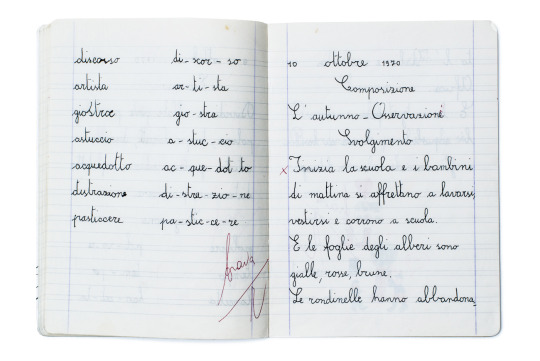 discorso di-scor-so
artista ar-ti-sta
giostra gio-stra
astuccio a-stuc-cio
acquedotto ac-que-dot to
distrazione di-stra-zio-ne
pasticcere pa-stic-ce-re
brava
10 ottobre 1970
Composizione
L'autunno - Osservazione
Svolgimento
x Inizia la scuola e i bambini
di mattina si affrettano a lavarsi,
vestirsi e corrono a scuola.
E le foglie degli alberi sono
gialle, rosse, brune,
Le rondinelle hanno abbandona